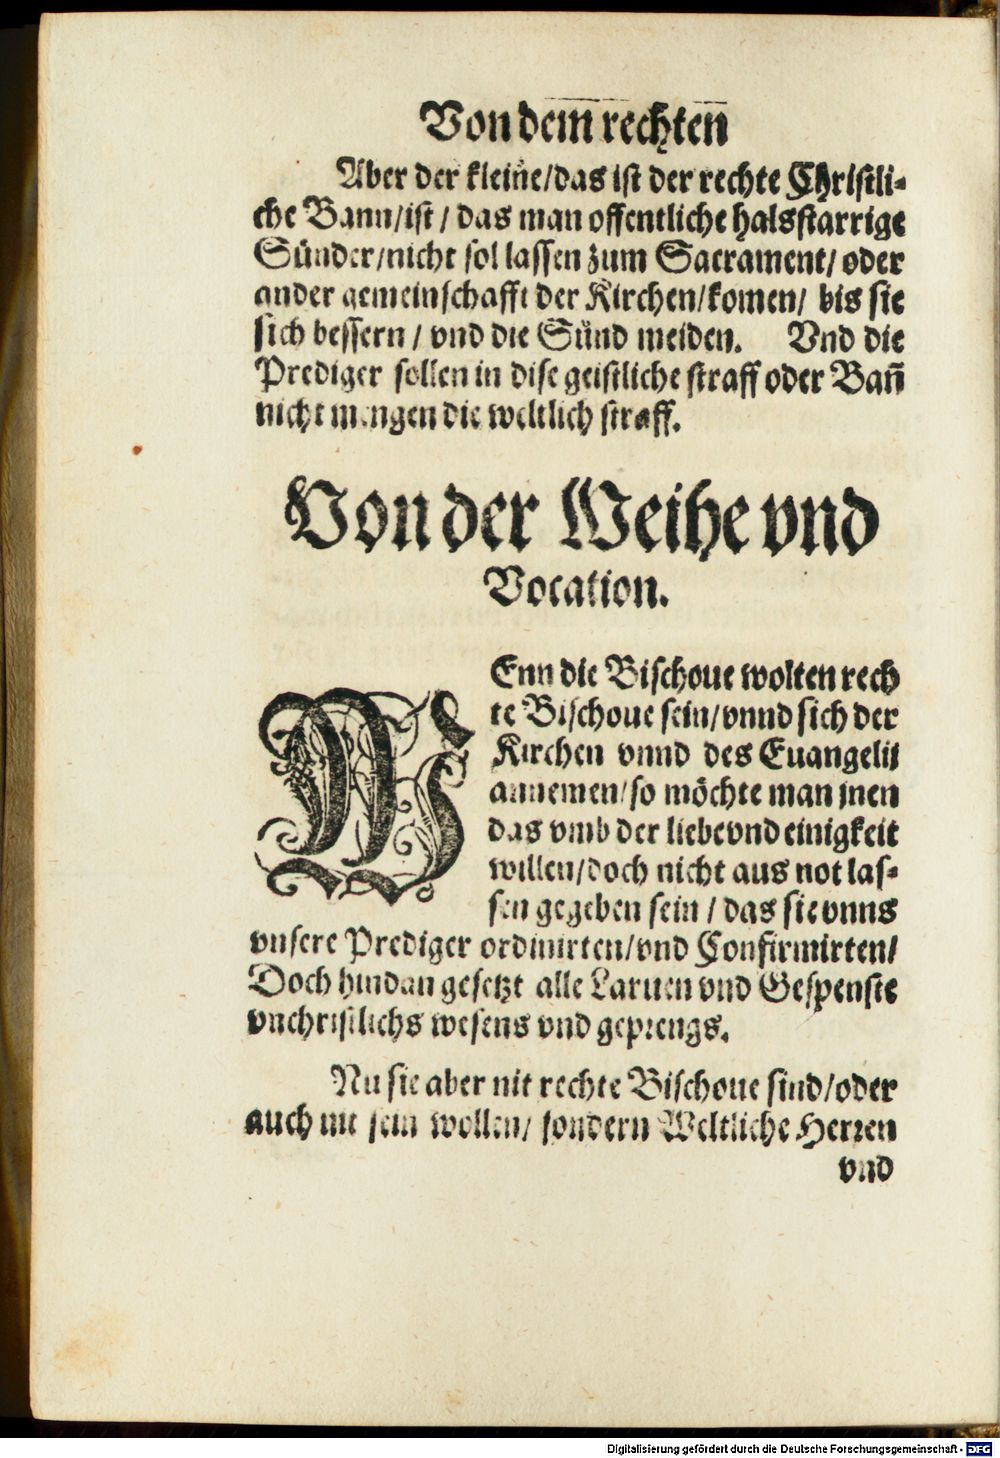 Von dem rechten
Aber der kleine/das ist der rechte Christli⸗
che Bann/ist/das man offentliche halsstarrige
Sünder/nicht sol lassen zum Sacrament/oder
ander gemeinschafft der Kirchen/komen/ bis sie
sich bessern/vnd die Sünd meiden. Vnd die
Prediger sollen in dise geistliche straff oder Bañ
nicht mengen die weltlich straff.
Von der Weihe vnd
Vocation.
WEnn die Bischoue wolten rech
te Bischoue sein/vnnd sich der
Kirchen vnnd des Euangelij
annemen/so möchte man jnen
das vmb der liebe vnd einigkeit
willen/doch nicht aus not las⸗
sen gegeben sein/das sie vnns
vnsere Prediger ordinirten/vnd Confirmirten/
Doch hindan gesetzt alle Laruen vnd Gespenste
vnchristlichs wesens vnd geprengs.
Nu sie aber nit rechte Bischoue sind/oder
auch nit sein wollen/sondern Weltliche Herren
vnd
Digitalisierung gefördert durch die Deutsche Forschungsgemeinschaft - DFG